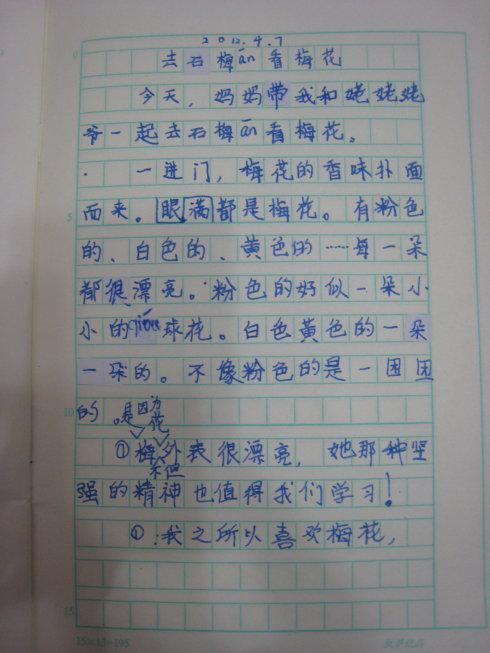 2012.4.7
去石梅ān看梅花
今天，妈妈带我和姥姥姥
爷一起去石梅ān看梅花。
一进门，梅花的香味扑面
5
而来。眼满都是梅花。有粉色
的、白色的、黄色的……每一朵
都很漂亮。粉色的好似一朵小
小的qiōu球花。白色黄色的一朵
一朵的。不像粉色的是一团团
10
的。
是因为
花
①梅外表很漂亮，她那种坚
不但
强的精神也值得我们学习！
①：我之所以喜欢梅花，
15
15×13=195